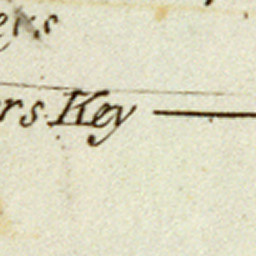 eys
rs Key